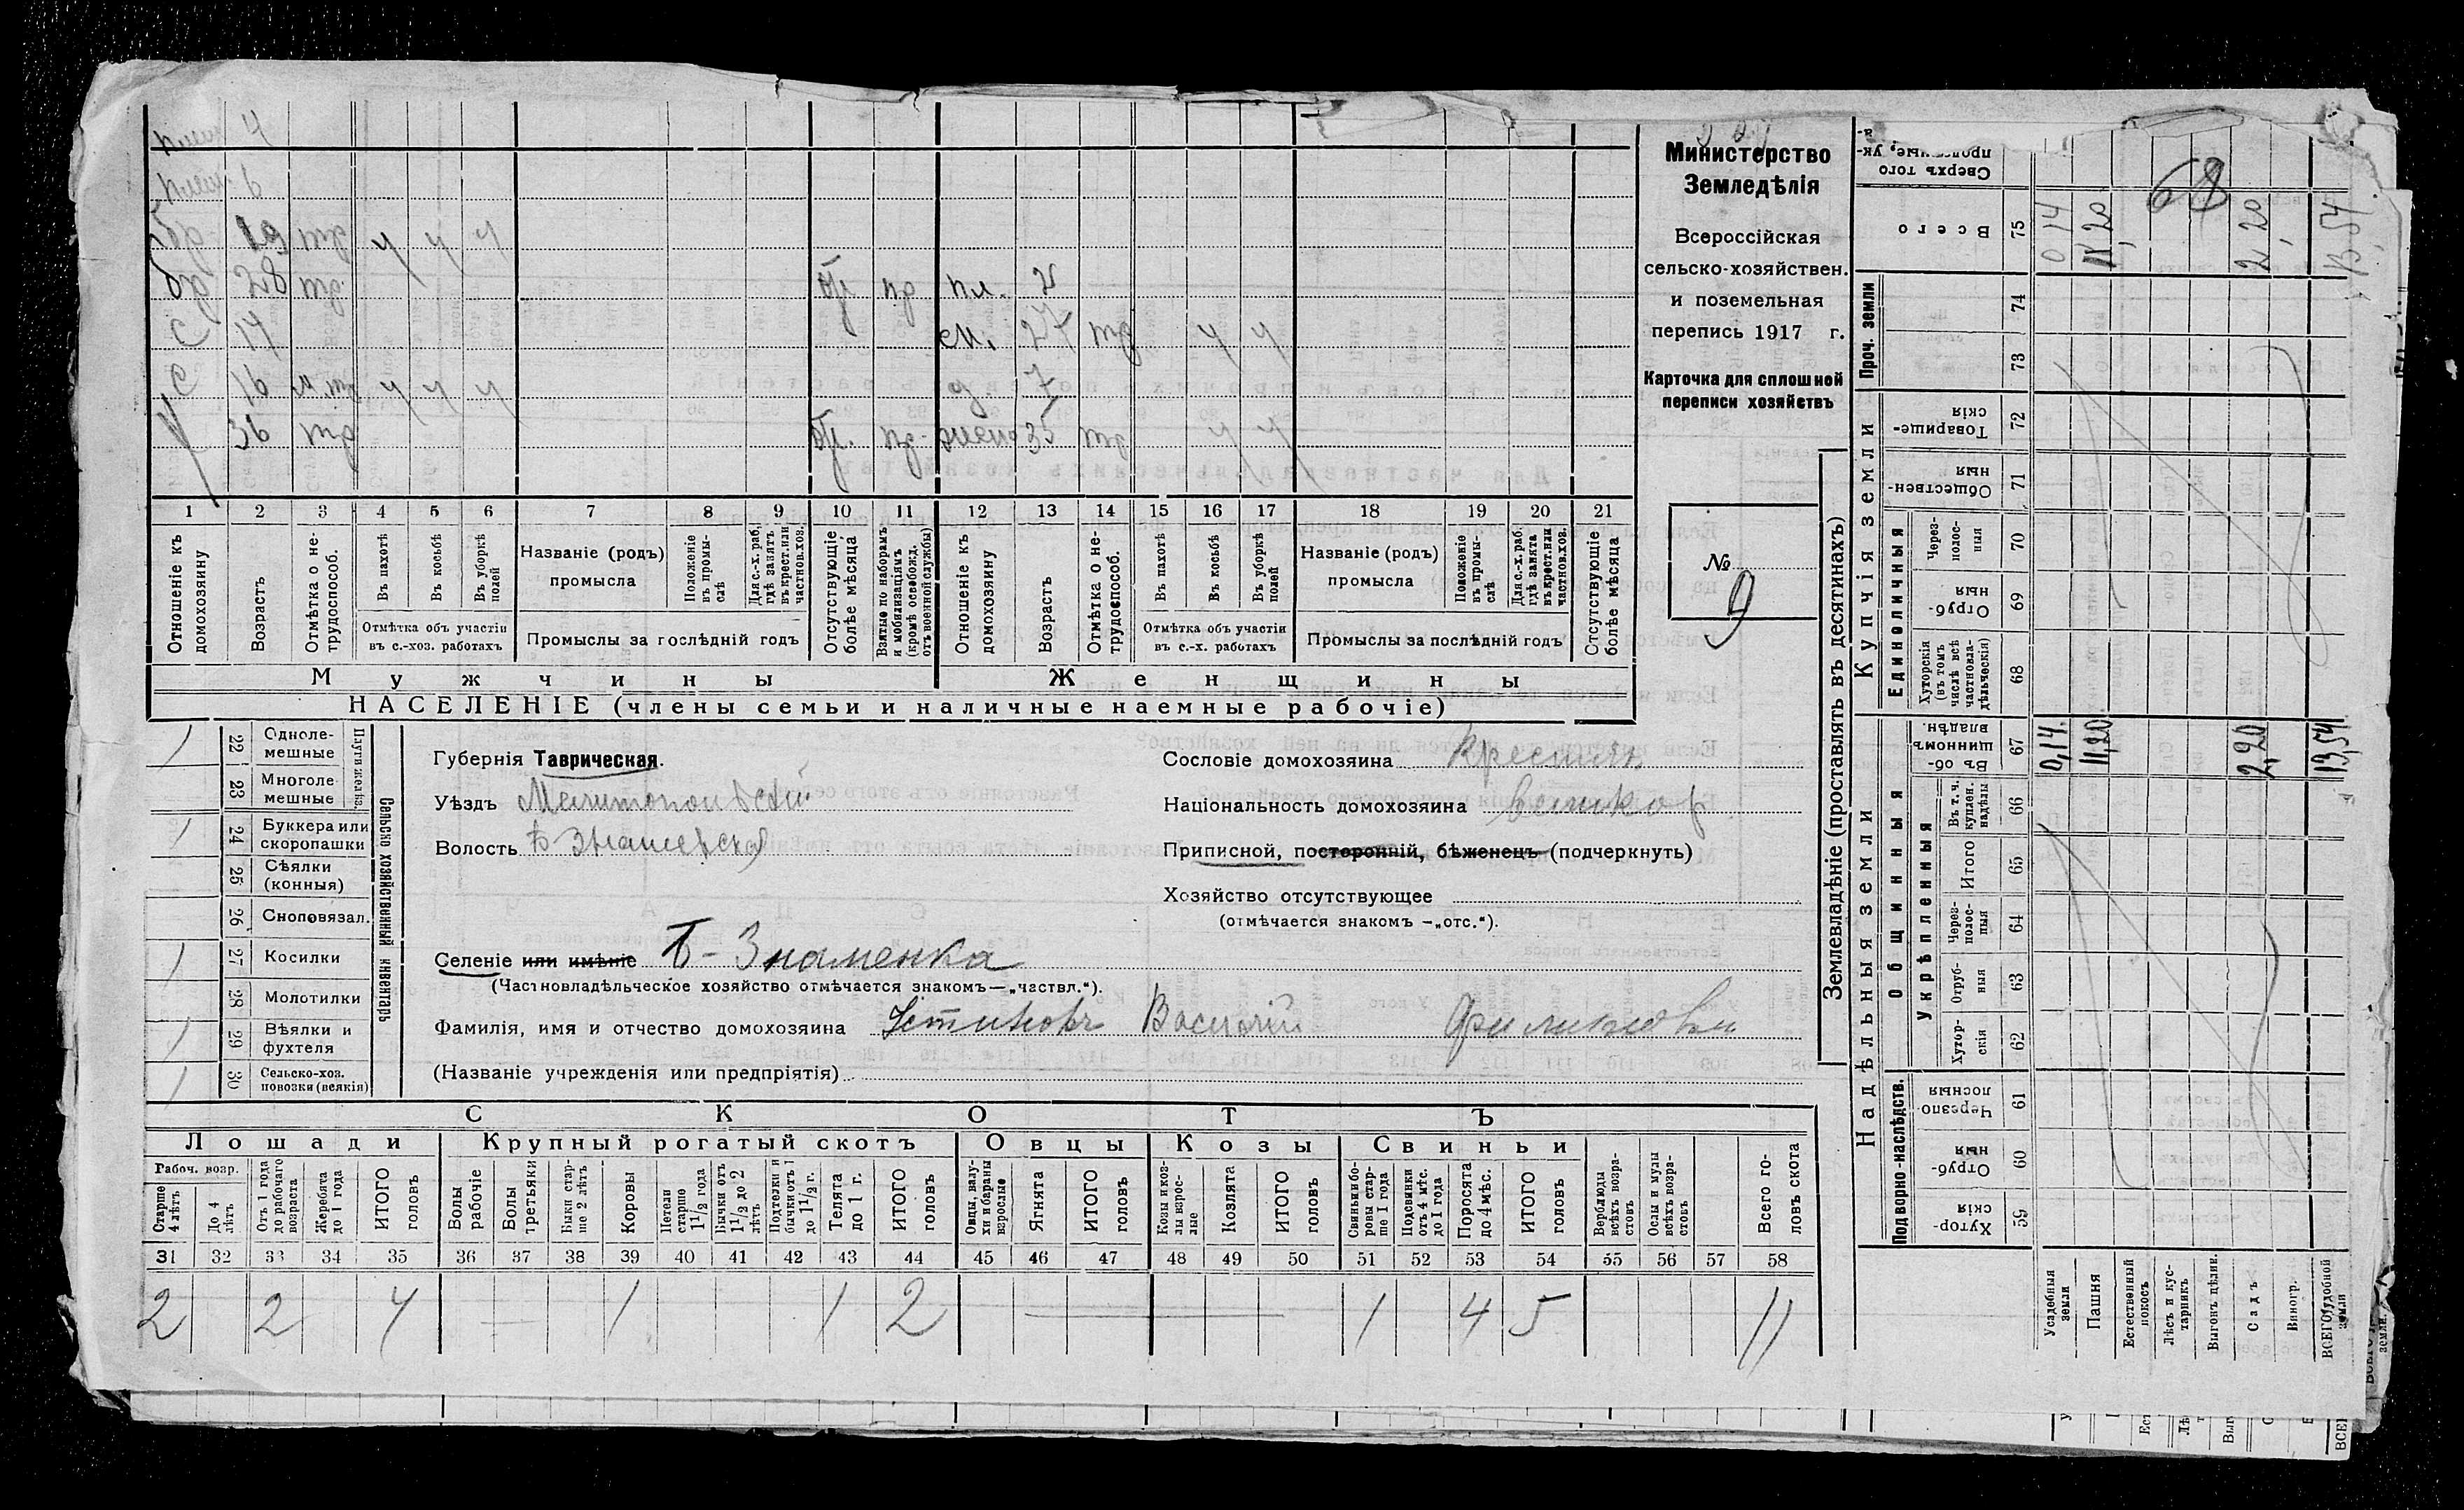 Министерство
Земледѣлія
Всероссійская
сельско-хозяйствен.
и поземельная
перепись 1917 г.
Карточка для сплошной
переписи хозяйствъ
№
9
68
4
6
19 тд ч ч ч
28 тд
С 14
С 16 ч ч ч
36 тд
пл. 2
см. 27 тд ч ч
д. 7
жена 35 тд ч ч
1 2 3 4 5 6 7 8 9 10 11 12 13 14 15 16 17 18 19 20 21
Отношеніе къ домохозяину
Возрастъ
Отмѣтка о не-трудоспособ.
Въ пахотѣ
Въ косьбѣ
Въ уборкѣ полей
Отмѣтка объ участіи въ с.-хоз. работахъ
Названіе (родъ) промысла
Положеніе въ промы-слѣ
Для с.-х. раб. гдѣ занятъ въ крест. или частнов. хоз.
Промыслы за послѣдній годъ
Отсутствующіе болѣе мѣсяца
Взятые по наборамъ и мобилизаціямъ (кромѣ освобожд. отъ военной службы)
Отношеніе къ домохозяину
Возрастъ
Отмѣтка о не-трудоспособ.
Въ пахотѣ
Въ косьбѣ
Въ уборкѣ полей
Отмѣтка объ участіи въ с.-х. работахъ
Названіе (родъ) промысла
Положеніе въ промы-слѣ
Для с.-х. раб. гдѣ занята въ крест. или частнов. хоз.
Промыслы за послѣдній годъ
Отсутствующіе болѣе мѣсяца
Мужчины
Женщины
НАСЕЛЕНІЕ (члены семьи и наличные наемные рабочіе)
Сельско хозяйственный инвентарь
Плуги желѣз.
1 22 Одноле-мешные
23 Многоле-мешные
1 24 Буккера или скоропашки
25 Сѣялки (конныя)
26 Сноповязал.
1 27 Косилки
28 Молотилки
1 29 Вѣялки и фухтеля
1 30 Сельско-хоз. повозки (всякія)
Губернія Таврическая.
Уѣздъ Мелитопольскій
Волость Б Знаменская
Сословіе домохозяина Крестьян
Національность домохозяина великор
Приписной, посторонній, бѣженецъ (подчеркнуть)
Хозяйство отсутствующее
(отмѣчается знакомъ —„отс.“).
Селеніе или имѣніе Б-Знаменка
(Частновладѣльческое хозяйство отмѣчается знакомъ—„частвл.“).
Фамилія, имя и отчество домохозяина Устиновъ Василій Филиппович
(Названіе учрежденія или предпріятія)
СКОТЪ
Лошади
Крупный рогатый скотъ
Овцы
Козы
Свиньи
Рабоч. возр.
Старше 4 лѣтъ
До 4 лѣтъ
Отъ 1 года до рабочаго возраста
Жеребята до 1 года
ИТОГО головъ
Волы рабочіе
Волы третьяки
Быки стар-ше 2 лѣтъ
Коровы
Петели старше 1 1/2 года
Бычки отъ 1 1/2 до 2 лѣтъ
Подтелки и бычки отъ 1 до 1 1/2 г.
Телята до 1 г.
ИТОГО головъ
Овцы, валу-хи и бараны взрослые
Ягнята
ИТОГО головъ
Козы и коз-лы взрос-лые
Козлята
ИТОГО головъ
Свиньи и бо-ровы стар-ше 1 года
Подсвинки отъ 4 мѣс. до 1 года
Поросята до 4 мѣс.
ИТОГО головъ
Верблюды всѣхъ возра-стовъ
Ослы и мулы всѣхъ возра-стовъ
Всего го-ловъ скота
31 32 33 34 35 36 37 38 39 40 41 42 43 44 45 46 47 48 49 50 51 52 53 54 55 56 57 58
2 2 4 — 1 1 2 — 1 4 5 11
Землевладѣніе (проставлять въ десятинахъ)
Надѣльныя земли
Купчія земли
Проч. земли
Подворно-наслѣдств.
Общинныя
Укрѣпленныя
Единоличныя
Хутор-скія 59
Отруб-ныя 60
Черезпо-лосныя 61
Хутор-скія 62
Отруб-ныя 63
Через-полос-ныя 64
Итого 65
Въ т. ч. куплен. надѣлы 66
Въ об-щинномъ владѣн. 67
Хуторскія (въ томъ числѣ всѣ частновла-дѣльческія) 68
Отруб-ныя 69
Через-полос-ныя 70
Обществен-ныя 71
Товарище-скія 72
73
74
Всего 75
Сверхъ того
Усадебныя земли 0,14. 0 14
Пашня 11,20 11,20
Естественный покосъ
Лѣсъ и кус-тарникъ
Выгонъ цѣлин.
Садъ 2,20 2,20
Виногр.
ВСЕГО удобной земли 13,54 13,54